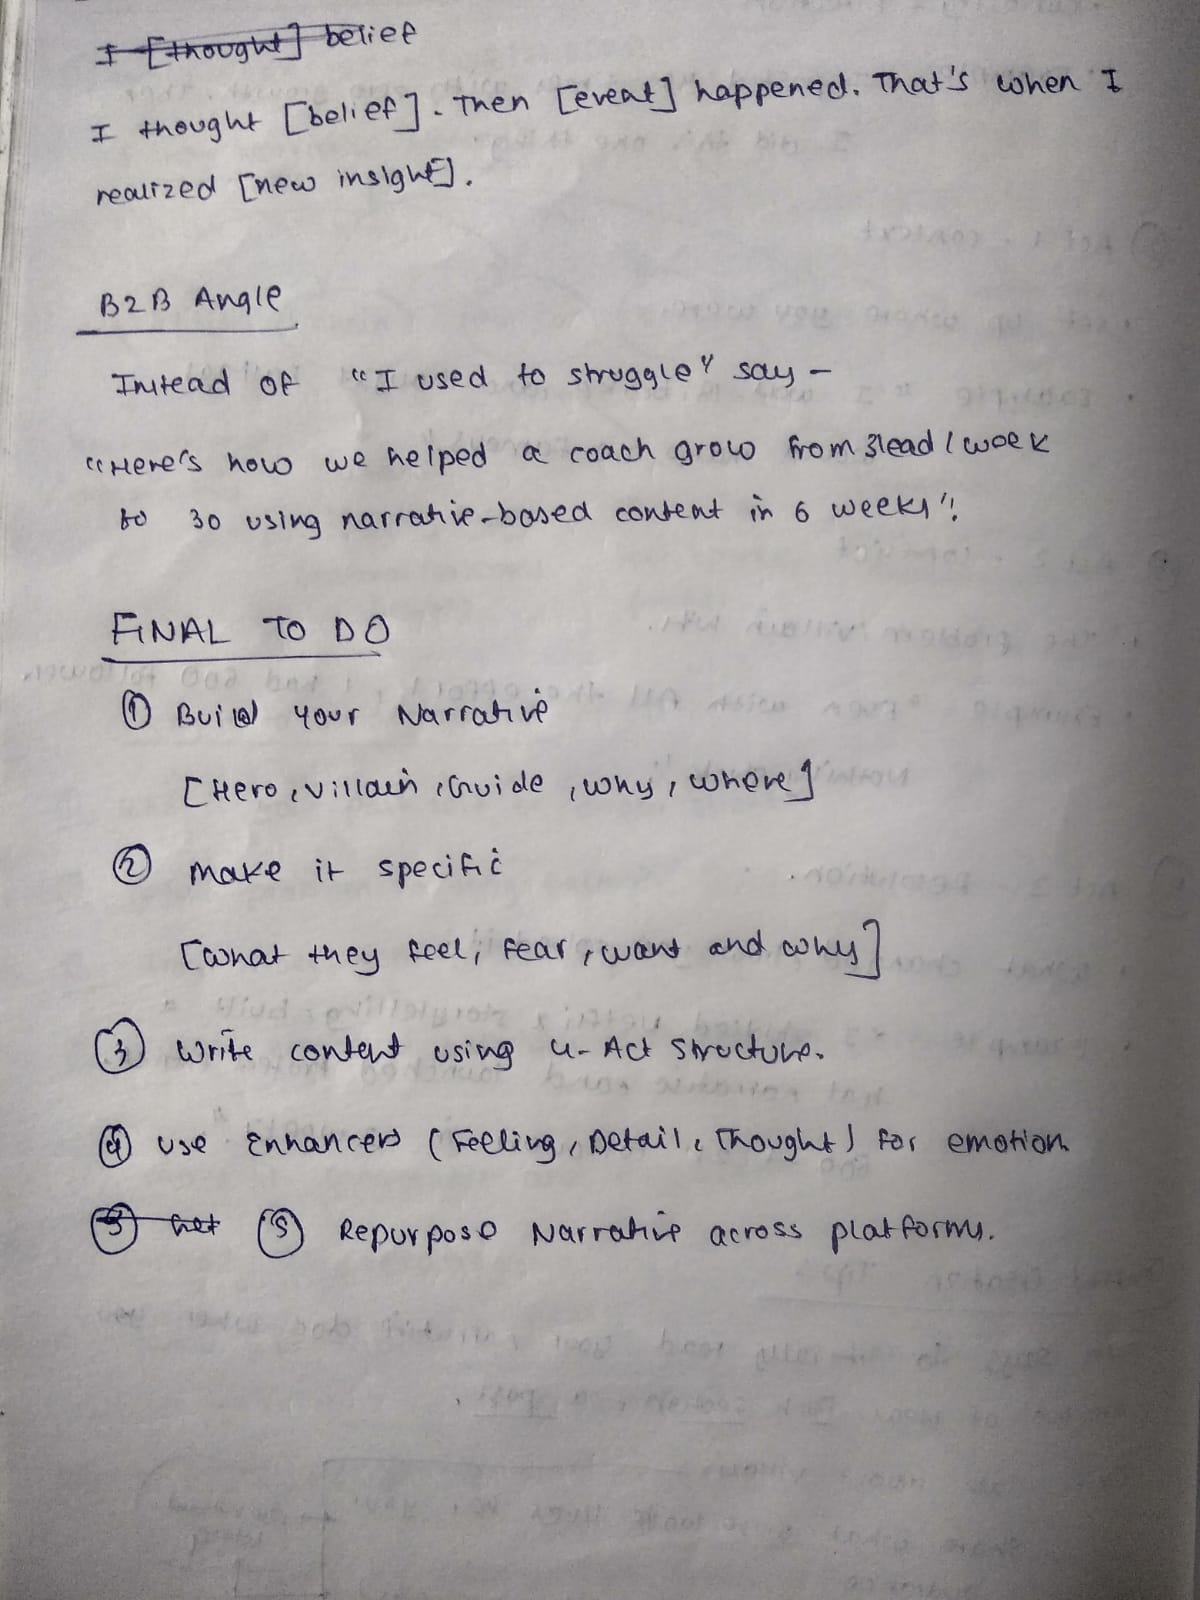 I [thought] belief
I thought [belief]. Then [event] happened. That's when I
realized [new insight].
B2B Angle
Instead of "I used to struggle" say -
"Here's how we helped a coach grow from 3lead / week
to 30 using narrative-based content in 6 weeks".
FINAL TO DO
① Build your Narrative
[Hero, Villain, Guide, why, where]
② make it specific
[what they feel, fear, want and why]
③ write content using 4-Act Structure.
④ use Enhancers (Feeling, Detail, Thought) for emotion
⑤ ⑤ Repurpose Narrative across platforms.